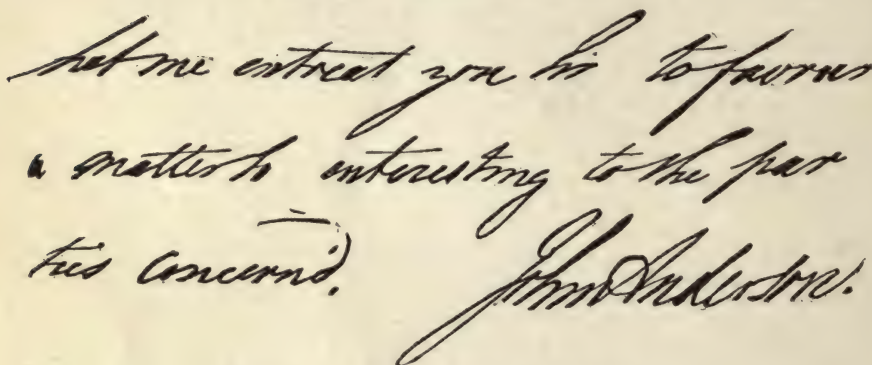 Let me entreat you Sir to favour
a matter so interesting to the par
ties concern'd.
John Anderson.